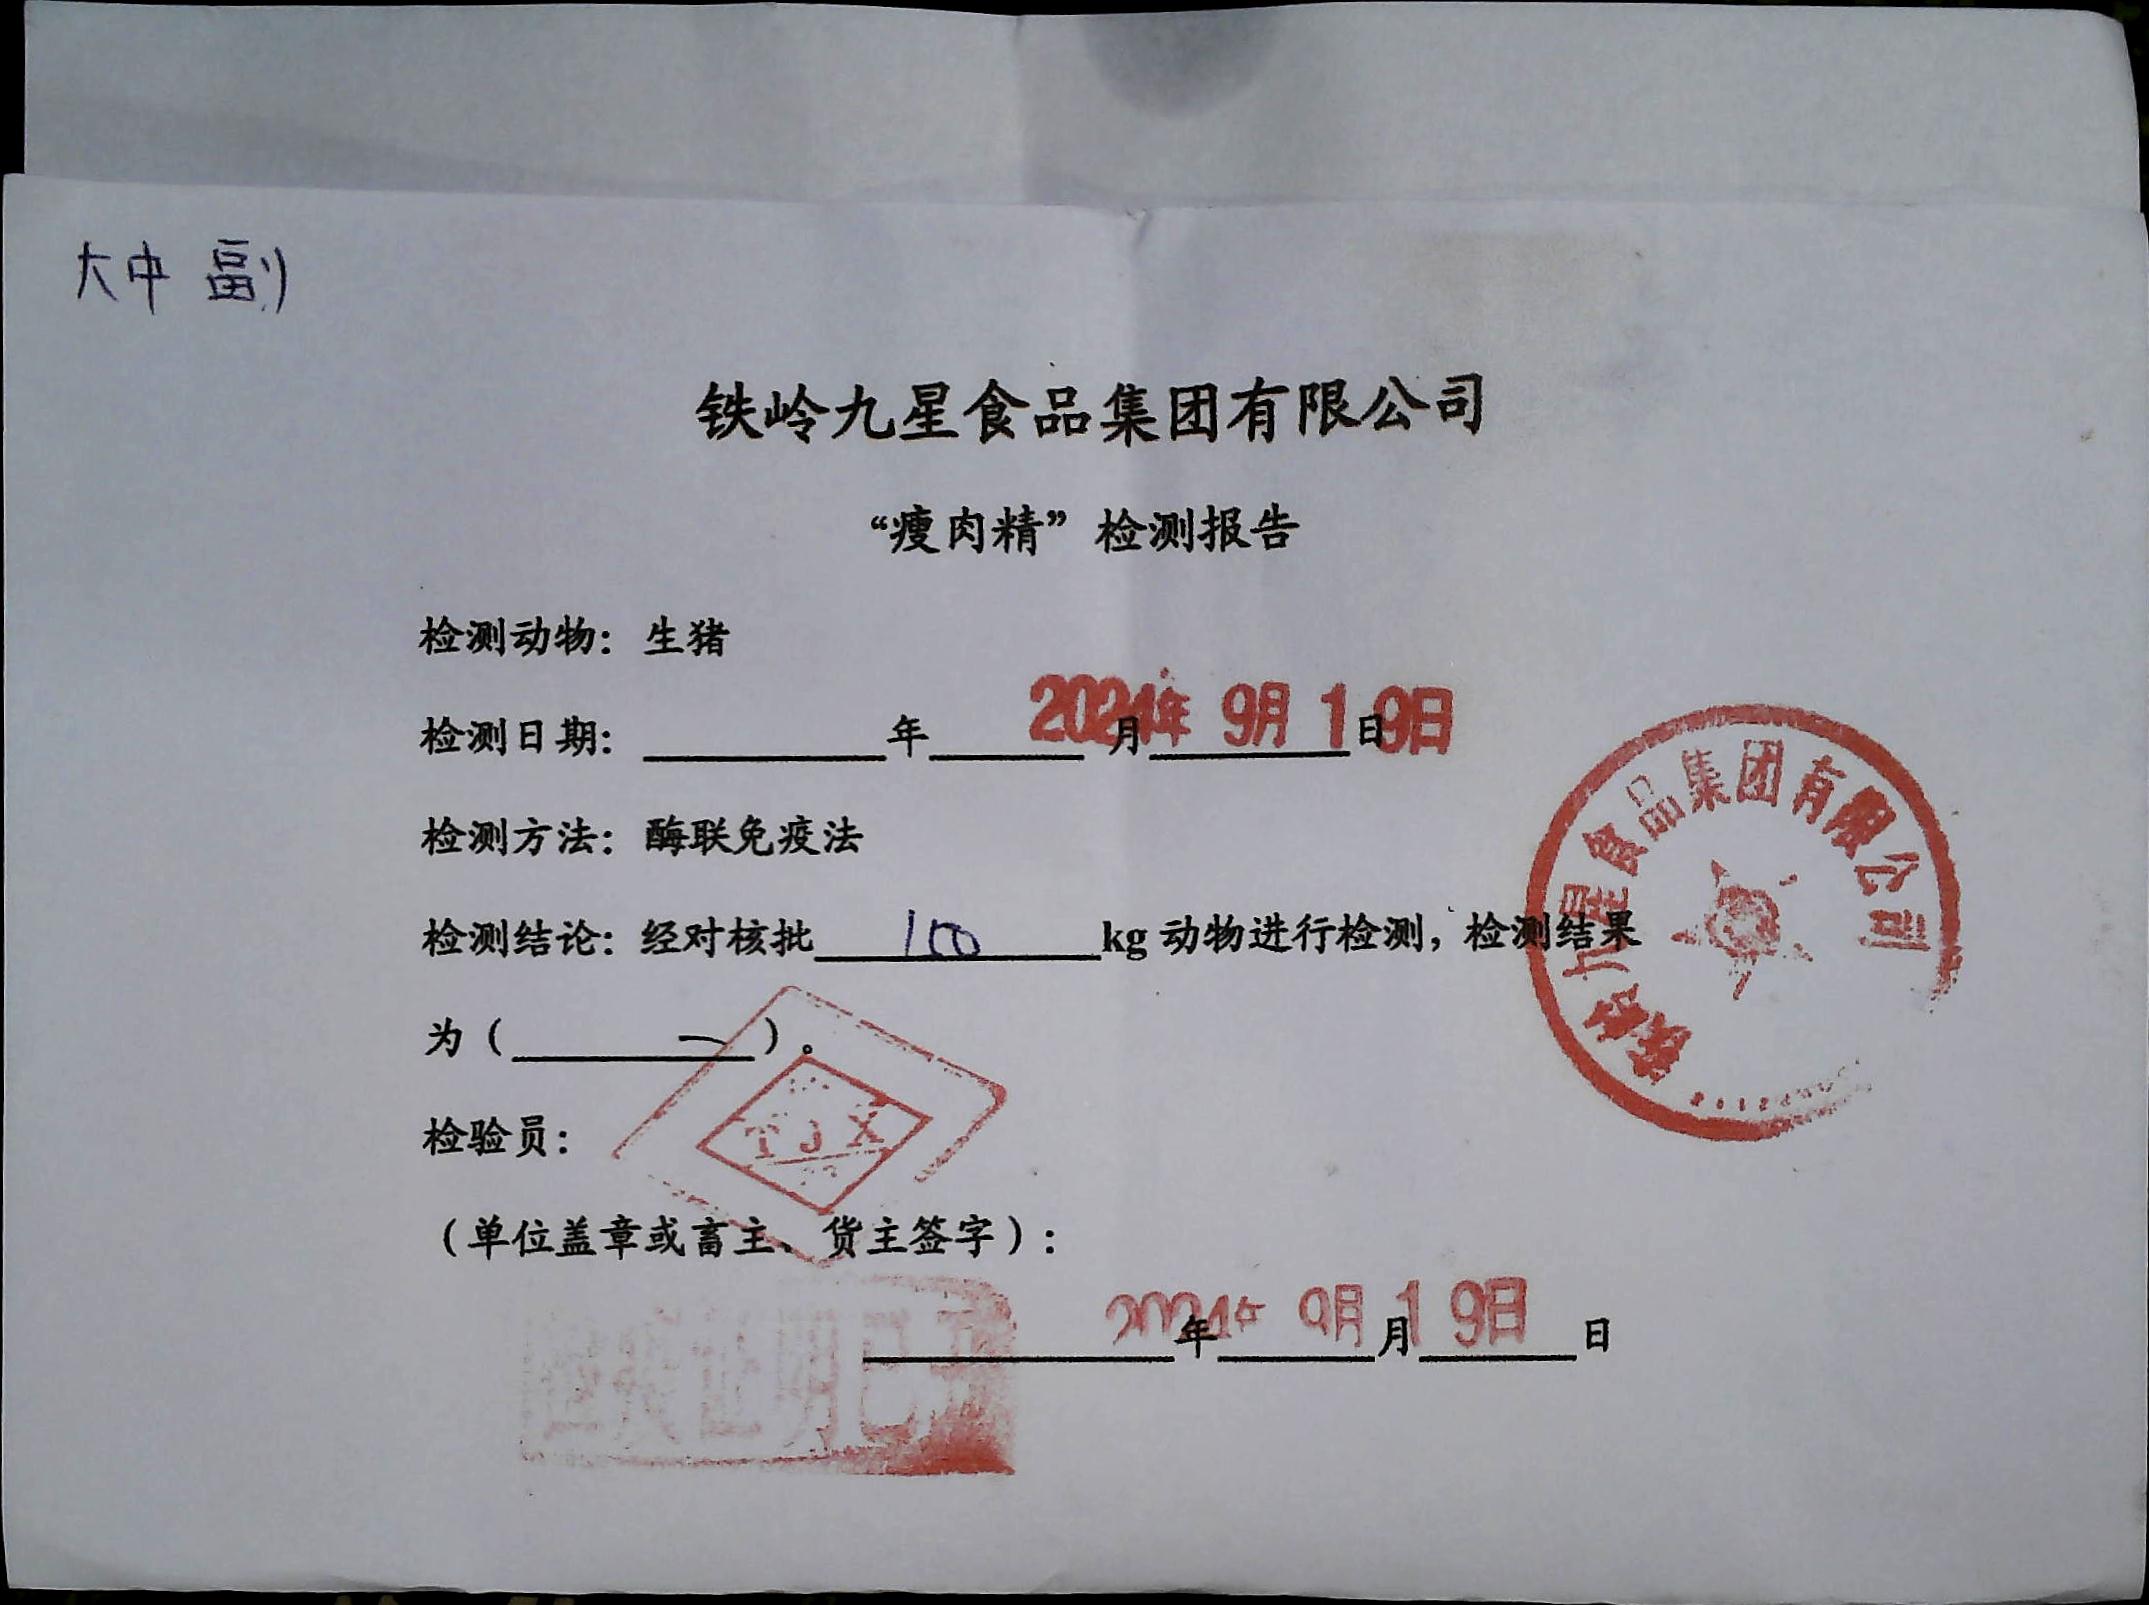 大中 副
铁岭九星食品集团有限公司
“瘦肉精”检测报告
检测动物：生猪
检测日期：年月日 2024年 9月19日
检测方法：酶联免疫法
检测结论：经对核批100kg动物进行检测，检测结果
为（一）。
检验员：
TJX
（单位盖章或畜主、货主签字）：
年月日 2024年 9月19日
铁岭九星食品集团有限公司
检疫证明已开